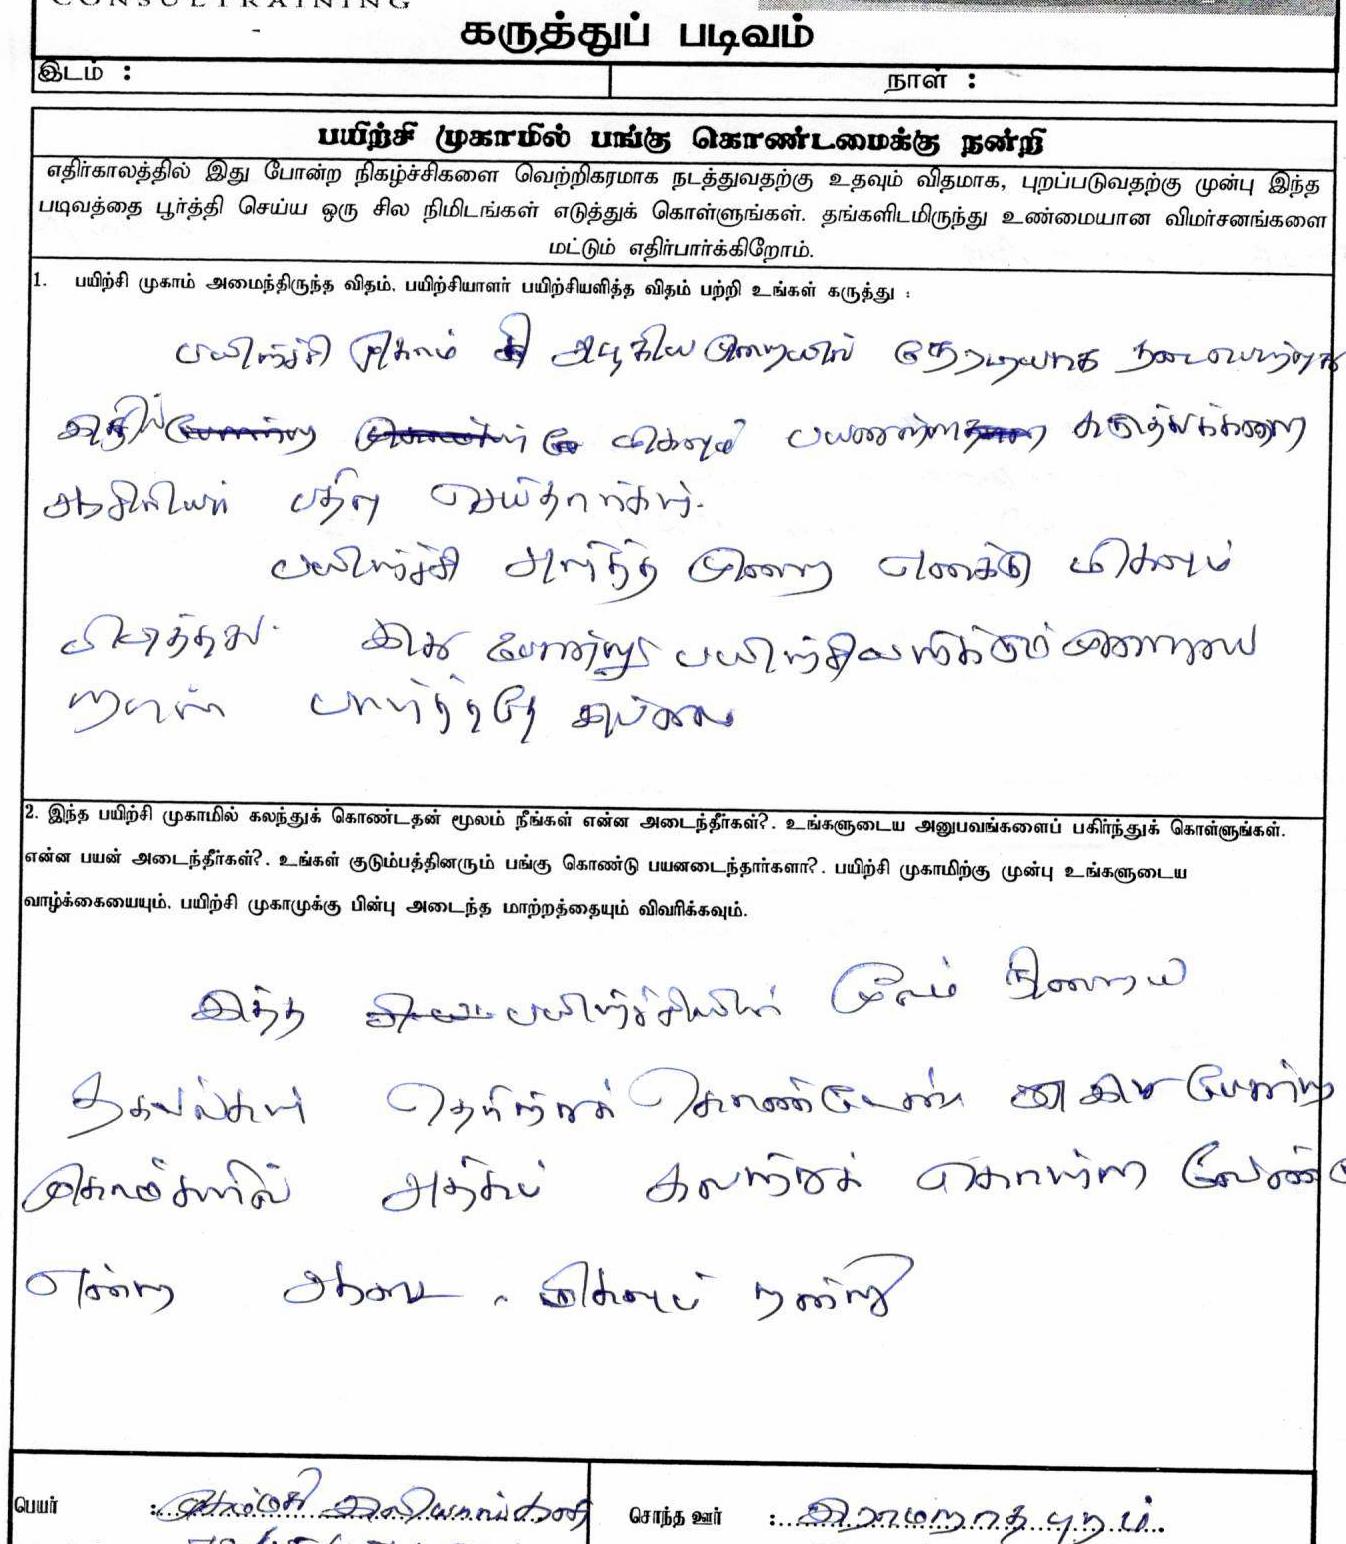 CONSULTRAINING
கருத்துப் படிவம்
இடம் : நாள் :
பயிற்சி முகாமில் பங்கு கொண்டமைக்கு நன்றி
எதிர்காலத்தில் இது போன்ற நிகழ்ச்சிகளை வெற்றிகரமாக நடத்துவதற்கு உதவும் விதமாக, புறப்படுவதற்கு முன்பு இந்த
படிவத்தை பூர்த்தி செய்ய ஒரு சில நிமிடங்கள் எடுத்துக் கொள்ளுங்கள். தங்களிடமிருந்து உண்மையான விமர்சனங்களை
மட்டும் எதிர்பார்க்கிறோம்.
1. பயிற்சி முகாம் அமைந்திருந்த விதம், பயிற்சியாளர் பயிற்சியளித்த விதம் பற்றி உங்கள் கருத்து :
பயிற்சி முகாம் முறையில் நேரடியாக நடைபெற்றது
இதில் மிகவும் பயனுள்ள கருத்துக்களை
ஆசிரியர் பதிவு செய்தார்கள்.
பயிற்சி அளித்த முறை எனக்கு மிகவும்
பிடித்தது. இது போன்று பயிற்சியளிக்கும் முறையை
நான் பார்த்ததே இல்லை
2. இந்த பயிற்சி முகாமில் கலந்துக் கொண்டதன் மூலம் நீங்கள் என்ன அடைந்தீர்கள்?. உங்களுடைய அனுபவங்களைப் பகிர்ந்துக் கொள்ளுங்கள்.
என்ன பயன் அடைந்தீர்கள்?. உங்கள் குடும்பத்தினரும் பங்கு கொண்டு பயனடைந்தார்களா?. பயிற்சி முகாமிற்கு முன்பு உங்களுடைய
வாழ்க்கையையும், பயிற்சி முகாமுக்கு பின்பு அடைந்த மாற்றத்தையும் விவரிக்கவும்.
இந்த பயிற்சியின் மூலம் நிறைய
தகவல்கள் தெரிந்துக் கொண்டேன் இது போன்ற
முகாம்களில் அதிகம் கலந்துக் கொள்ள
என்ற ஆசை. மிகவும் நன்றி
பெயர் : சொந்த ஊர் : இராமநாதபுரம்.